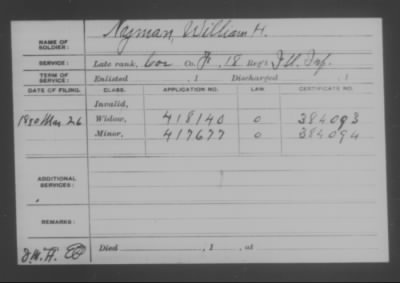 NAME OF SOLDIER: Nagman, William H.
SERVICE: Late rank, Co. 18 Reg't Inf.
TERM OF SERVICE: Enlisted , 1 Discharged , 1
DATE OF FILING. CLASS. APPLICATION NO. LAW. CERTIFICATE NO.
Invalid,
Mar 26 Widow, 418140 0 384093
Minor, 417677 0 384094
ADDITIONAL SERVICES:
REMARKS:
Died , 1 , at